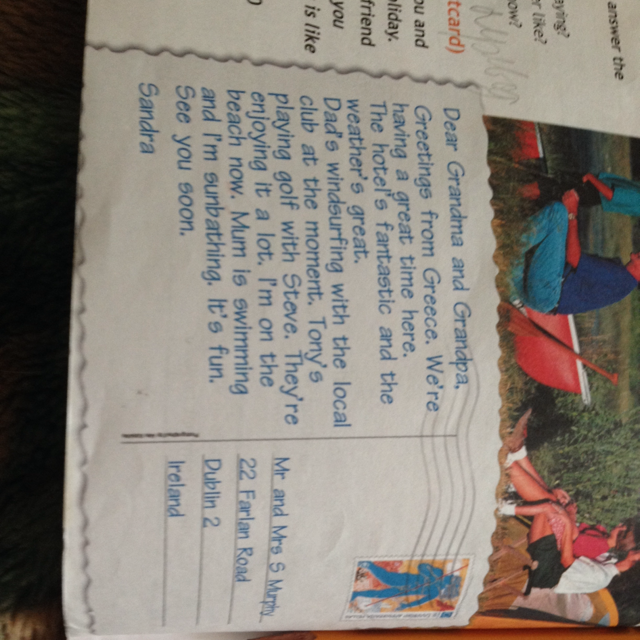 answer the
aying?
or like?
now?
tcard)
ou and
liday.
friend
you
is like
Dear Grandma and Grandpa,
Greetings from Greece. We're
having a great time here.
The hotel's fantastic and the
weather's great.
Dad's windsurfing with the local
club at the moment. Tony's
playing golf with Steve. They're
enjoying it a lot. I'm on the
beach now. Mum is swimming
and I'm sunbathing. It's fun.
See you soon.
Sandra
Mr and Mrs S Murphy
22 Farlan Road
Dublin 2
Ireland